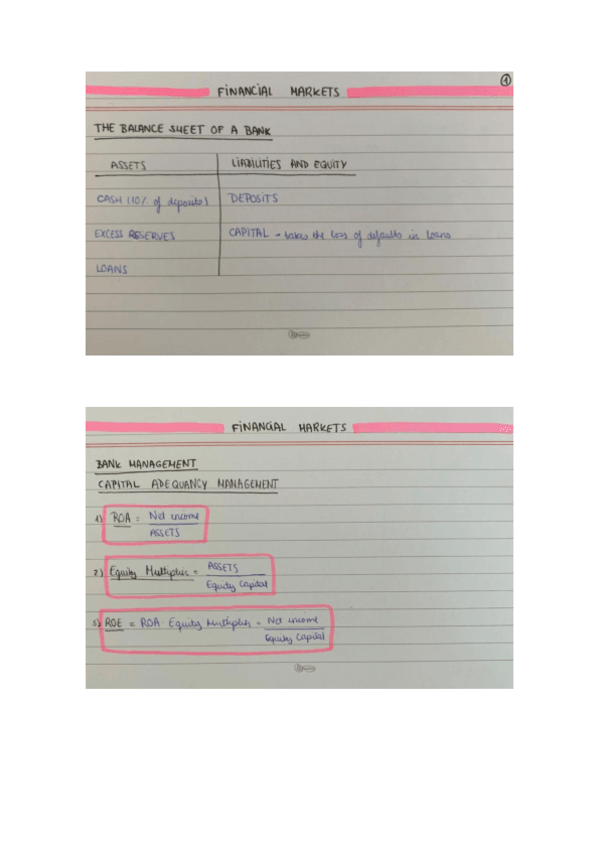 1
FINANCIAL MARKETS
THE BALANCE SHEET OF A BANK
ASSETS LIABILITIES AND EQUITY
CASH (10% of deposits) DEPOSITS
EXCESS RESERVES CAPITAL → takes the loss of defaults in loans
LOANS
FINANCIAL MARKETS
BANK MANAGEMENT
CAPITAL ADEQUANCY MANAGEMENT
1) ROA = Net income / ASSETS
2) Equity Multiplier = ASSETS / Equity Capital
3) ROE = ROA · Equity Multiplier = Net income / Equity Capital